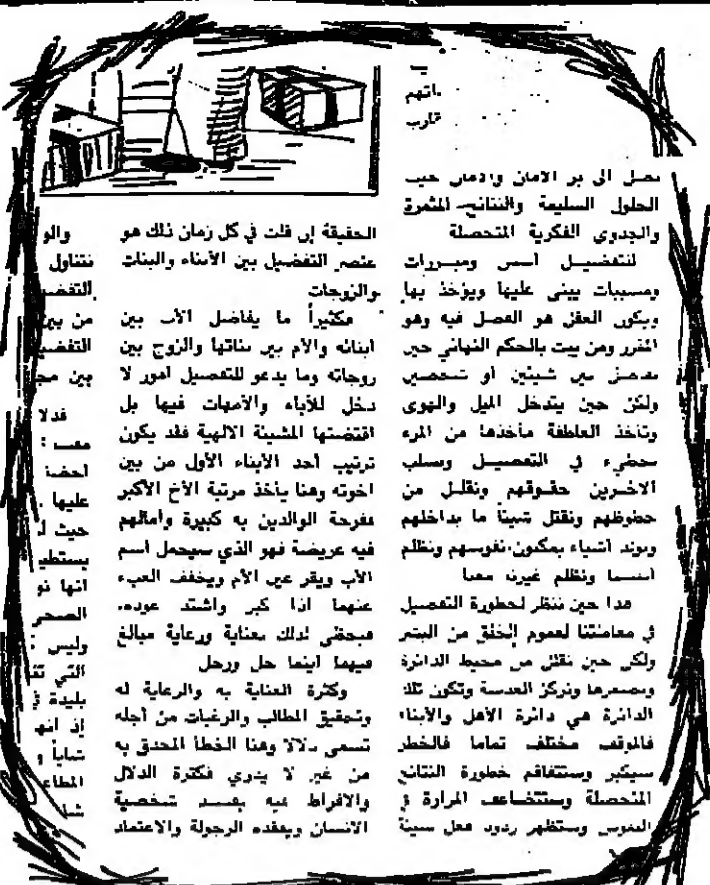 اتهم
قارب
نصل الى بر الأمان والامان حيث
الحلول السليمة والنتائج المثمرة
والجدوى الفكرية المتحصلة
للتفضيل أسس ومبررات
ومسببات يبنى عليها ويؤخذ بها
ويكون العقل هو الفصل فيه وهو
المقرر ومن يبت بالحكم النهائي حين
نفضل بين شيئين أو شخصين
ولكن حين يتدخل الميل والهوى
وتأخذ العاطفة مأخذها من المرء
سنخطىء في التفضيل ونسلب
الآخرين حقوقهم ونقلل من
حظوظهم ونقتل شيئاً ما بداخلهم
ونولد أشياء بمكنون نفوسهم ونظلم
أنفسنا ونظلم غيرنا معنا
هذا حين ننظر لخطورة التفضيل
في معاملتنا لعموم الخلق من البشر
ولكن حين نقلل من محيط الدائرة
ونصغرها ونركز العدسة وتكون تلك
الدائرة هي دائرة الأهل والأبناء
فالموقف مختلف تماما فالخطر
سيكبر وستتفاقم خطورة النتائج
المتحصلة وستتضاعف المرارة في
النفوس وستظهر ردود فعل سيئة
الحقيقة إن قلت في كل زمان ذلك هو
عنصر التفضيل بين الأبناء والبنات
والزوجات
فكثيراً ما يفاضل الأب بين
أبنائه والأم بين بناتها والزوج بين
زوجاته وما يدعو للتفضيل أمور لا
دخل للآباء والأمهات فيها بل
اقتضتها المشيئة الالهية فقد يكون
ترتيب أحد الأبناء الأول من بين
اخوته وهنا يأخذ مرتبة الأخ الأكبر
ففرحة الوالدين به كبيرة وآمالهم
فيه عريضة فهو الذي سيحمل اسم
الأب ويقر عين الأم ويخفف العبء
عنهما اذا كبر واشتد عوده.
فيحظى لذلك بعناية ورعاية مبالغ
فيهما أينما حل ورحل
وكثرة العناية به والرعاية له
وتحقيق المطالب والرغبات من أجله
تسمى دلالا وهنا الخطأ المحدق به
من غير لا يدري فكثرة الدلال
والافراط فيه يفسد شخصية
الانسان ويفقده الرجولة والاعتماد
والو
نتناول
التفضيـ
من بين
التفضيـ
بين مجـ
فدلا
عليها
حيث لـ
يستطيـ
انها نو
الصحر
وليس
التي تقـ
بليدة
إذ انها
شاباً و
المطاعـ